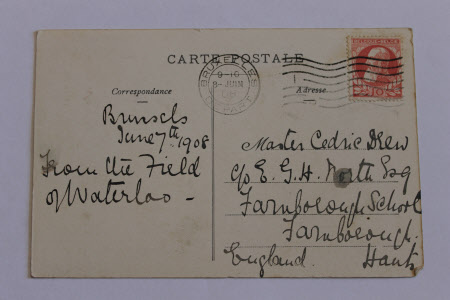 CARTE POSTALE
BRUXELLES
9-10
8-JUIN
Correspondance
Adresse
10
Brussels
June 7th 1908
From the Field
of Waterloo -
Master Cedric Drew
c/o E. G. H. North Esq
Farnborough School
Farnborough.
Hants
England.